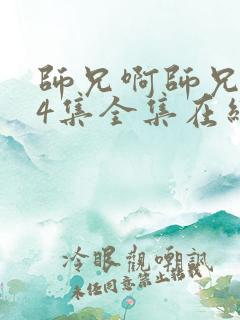 師兄啊師兄
4集全集在線
冷眼觀嘲諷
未任同意禁止轉載